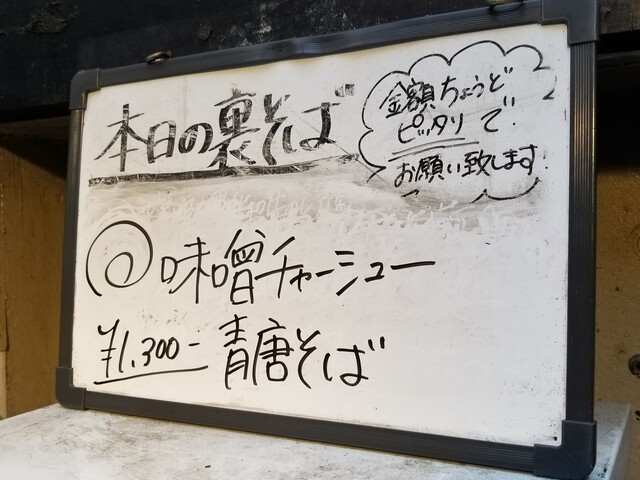 本日の裏そば
金額ちょうど
ピッタリで
お願い致します
味噌チャーシュー
青唐そば
¥1,300-